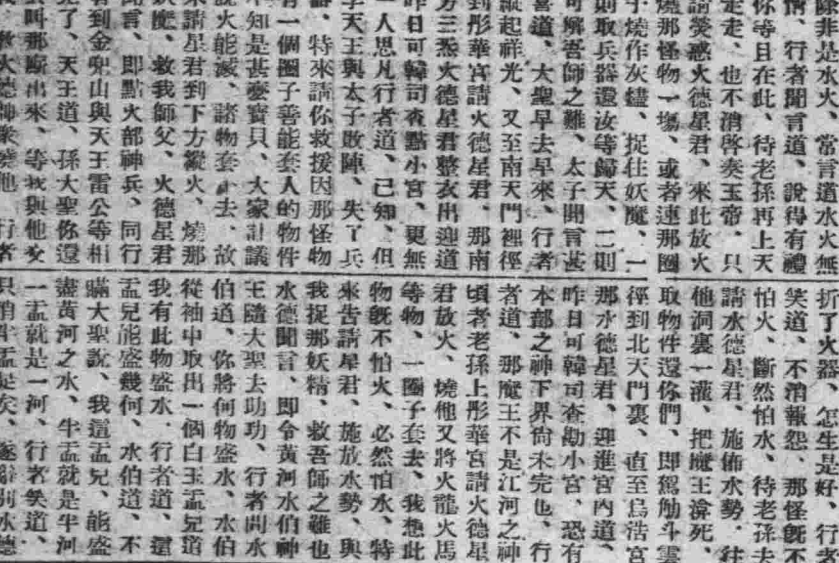 除非是水火、常言道水火無
情、行者聞言道、說得有禮
你等且在此、待老孫再上天
走走、也不消啓奏玉帝、只
請熒惑火德星君、來此放火
燒那怪物一塲、或者連那圈
子燒作灰燼、捉住妖魔、一
則取兵器還汝等歸天、二則
可解吾師之難、太子聞言甚
喜道、大聖早去早來、行者
縱起祥光、又至南天門裡徑
到彤華宮請火德星君、那南
方三炁火德星君整衣出迎道
昨日可韓司查點小宮、更無
一人思凡行者道、已知、但
李天王與太子敗陣、失了兵
器、特來請你救援因那怪物
有一個圈子善能套人的物件
不知是甚麼寶貝、大家計議
說火能滅、諸物套去、故
來請星君到下方縱火、燒那
妖魔、救我師父、火德星君
聞言、即點火部神兵、同行
者到金㘾山與天王雷公等相
見了、天王道、孫大聖你還
去叫那廝出來、等我與他交
火德帥衆燒他 行者
折了火器、怎生是好 行者
笑道、不消報怨、那怪旣不
怕火、斷然怕水、待老孫去
請水德星君、施佈水勢、往
他洞裏一灌、把魔王渰死、
取物件還你們、即駕觔斗雲
徑到北天門裏、直至烏浩宮
那水德星君、迎進宮內道、
昨日可韓司查勘小宮、恐有
本部之神下界尚未完也、行
者道、那魔王不是江河之神
頃者老孫上彤華宮請火德星
君放火、燒他又將火龍火馬
等物、一圈子套去、我想此
物旣不怕火、必然怕水、特
來告請星君、施放水勢、與
我捉那妖精、救吾師之難也
水德聞言、即令黃河水伯神
王隨大聖去助功、行者問水
伯道、你將何物盛水、水伯
從袖中取出一個白玉盂兒道
我有此物盛水、行者道、這
盂兒能盛幾何、水伯道、不
瞞大聖說、我這盂兒、能盛
盡黃河之水、半盂就是半河
一盂就是一河、行者笑道、
只消半盂足矣、遂辭別水德